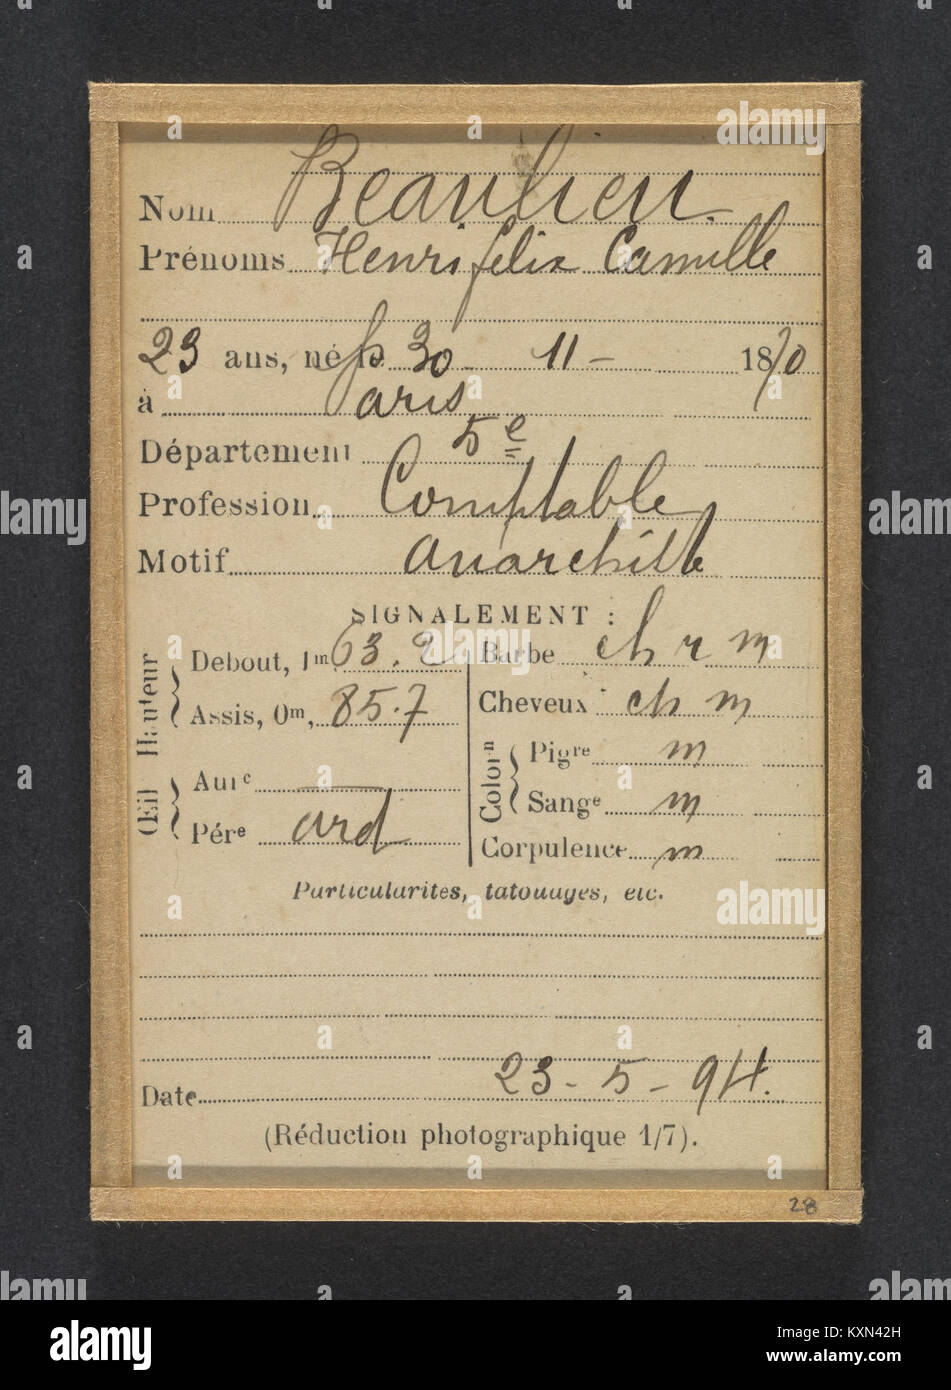 Nom Beaulieu.
Prénoms Henri félix Camille
23 ans, né le 30 - 11 - 1870
à Paris
Département 5e
Profession Comptable
Motif anarchiste
SIGNALEMENT :
Hauteur
Debout, 1m 63.2
Assis, 0m, 85.7
Œil
Aurc
Pére ard
Barbe ch r m
Cheveux ch m
Colorn
Pigre m
Sange m
Corpulence m
Particularités, tatouages, etc.
Date 23-5-94.
(Réduction photographique 1/7).
28
alamy
alamy
alamy
alamy
alamy
alamy
alamy
alamy
a
Image ID: KXN42H
www.alamy.com